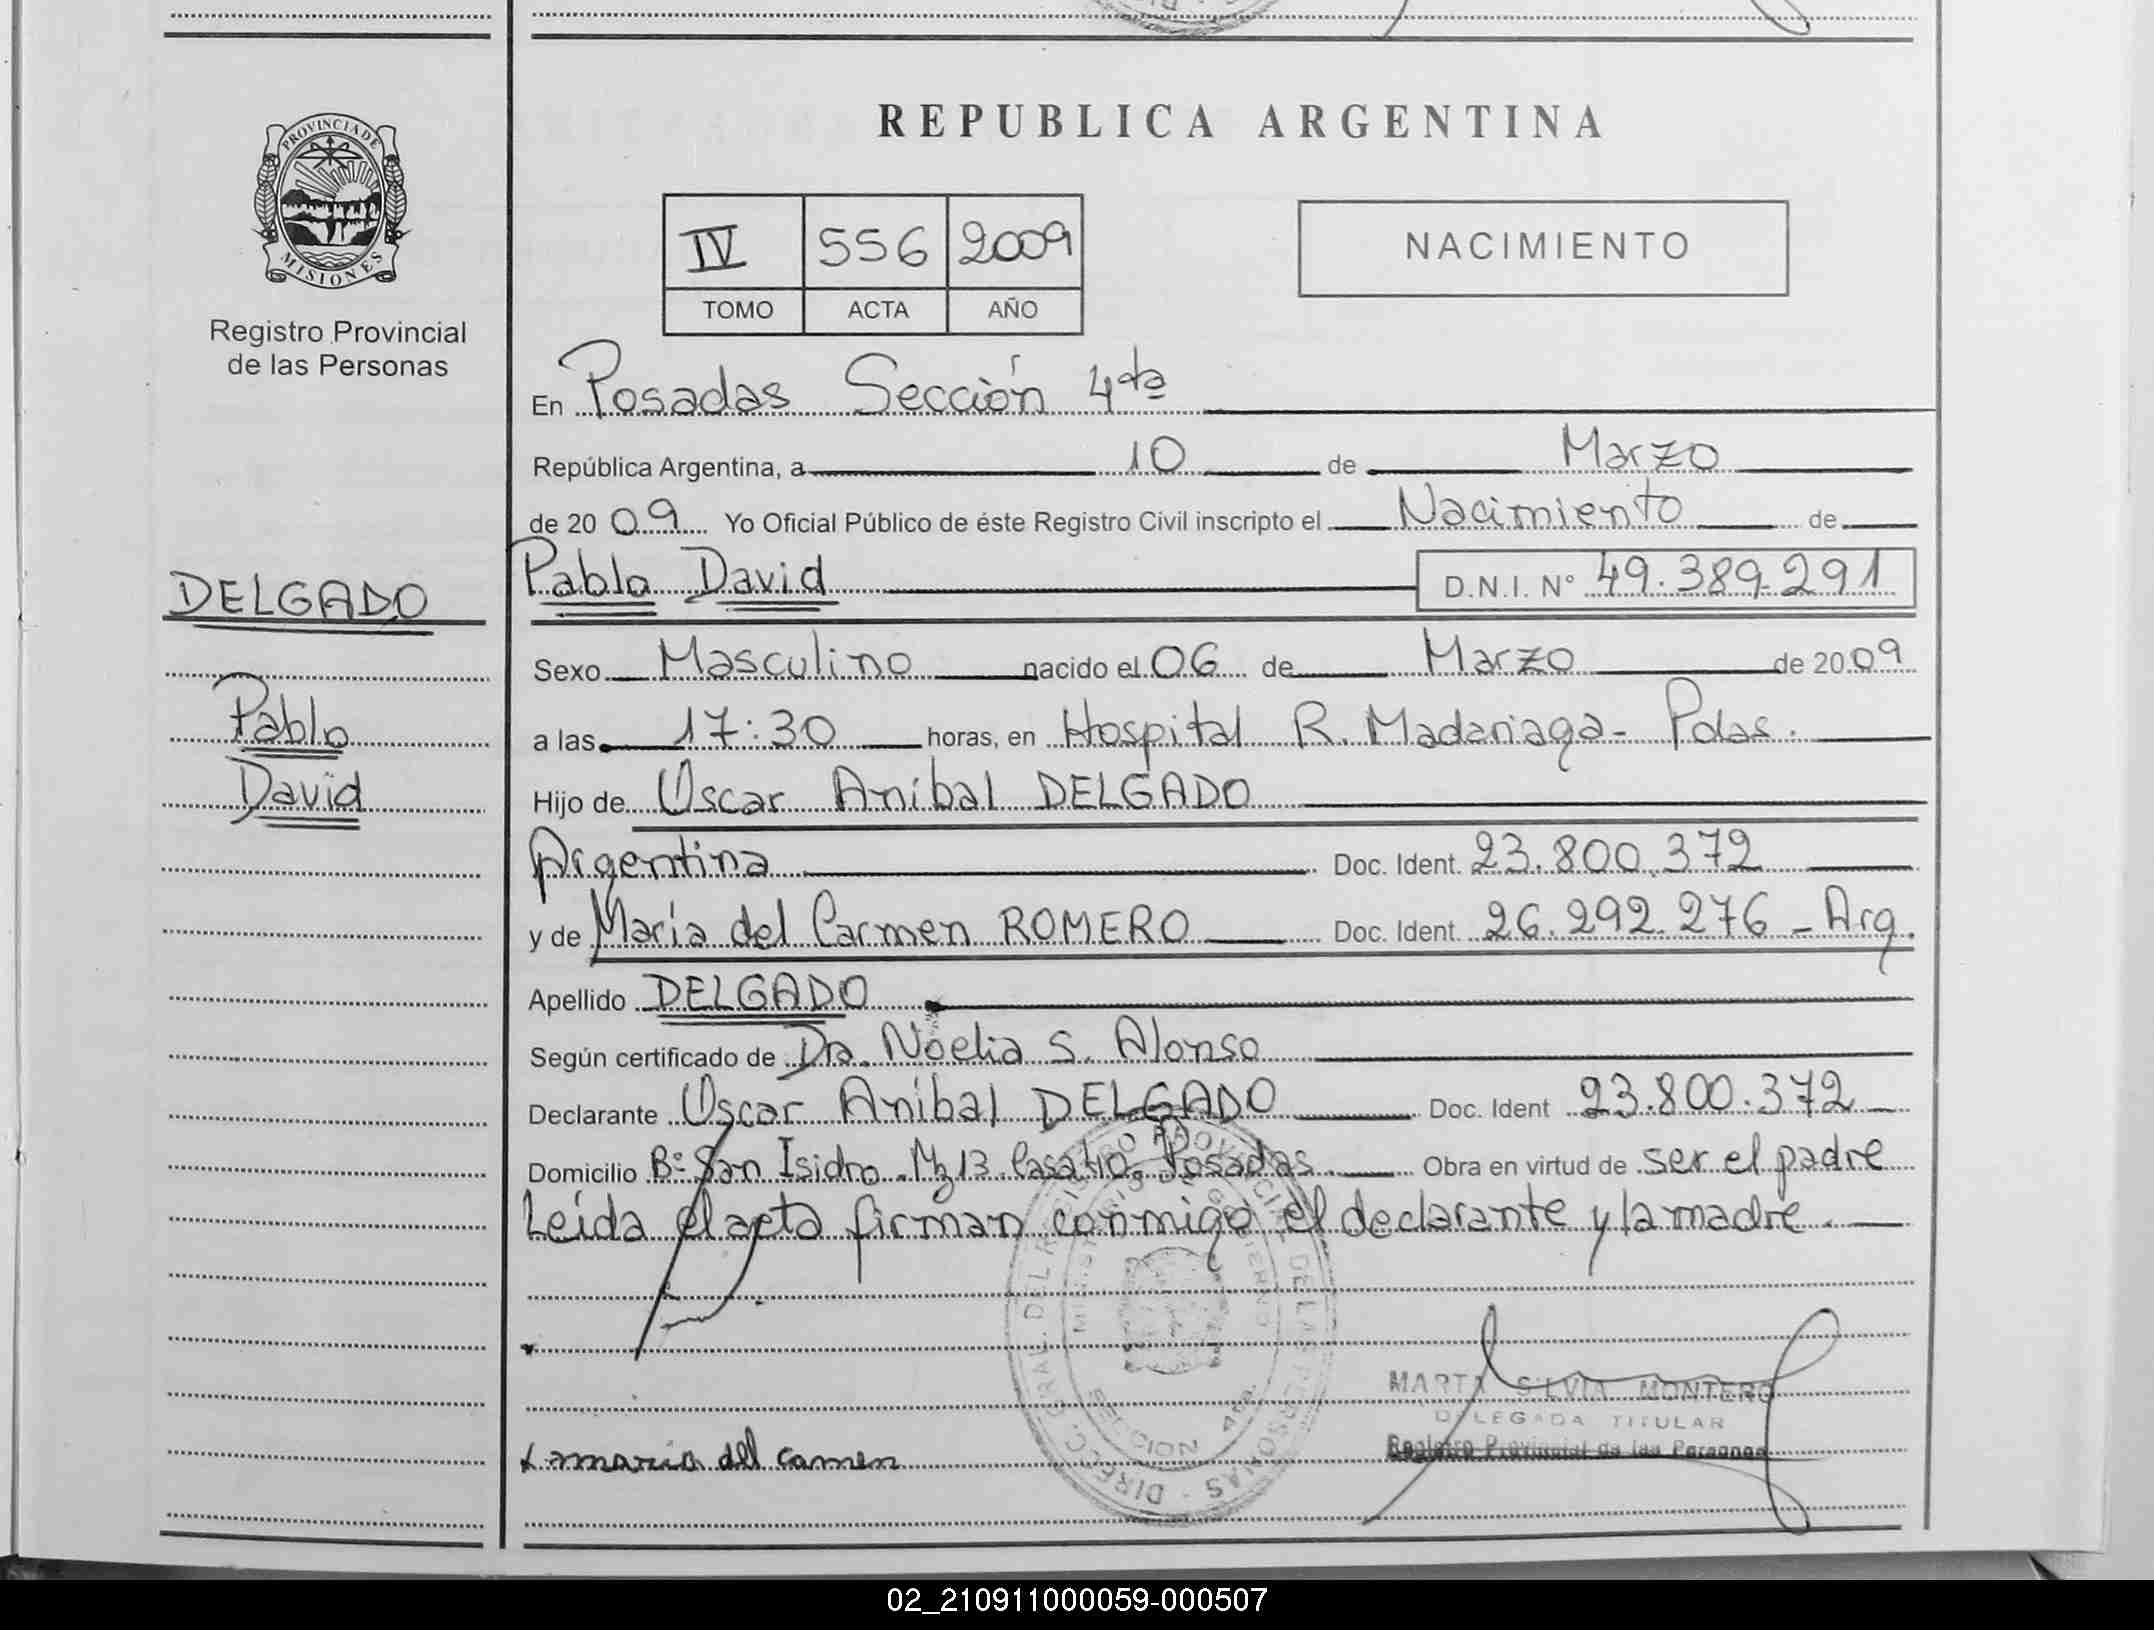 PROVINCIA DE
MISIONES
Registro Provincial
de las Personas
DELGADO
Pablo
David
REPUBLICA ARGENTINA
IV 556 2009
TOMO ACTA AÑO
NACIMIENTO
En Posadas Sección 4ta
República Argentina, a 10 de Marzo
de 20 09 Yo Oficial Público de éste Registro Civil inscripto el Nacimiento de
Pablo David D.N.I. N° 49.389.291
Sexo Masculino nacido el 06 de Marzo de 20 09
a las 17:30 horas, en Hospital R. Madariaga - Pdas.
Hijo de Oscar Aníbal DELGADO
Argentina Doc. Ident. 23.800.372
y de María del Carmen ROMERO Doc. Ident. 26.292.276 - Arg.
Apellido DELGADO
Según certificado de Dra. Noelia S. Alonso
Declarante Oscar Aníbal DELGADO Doc. Ident 23.800.372
Domicilio B° San Isidro Mz 13 Casa Posadas Obra en virtud de ser el padre
Leída el acta firman conmigo el declarante y la madre.
DIREC. GRAL. DEL REGISTRO PROVINCIAL DE LAS PERSONAS
MINISTERIO DE GOBIERNO
SECCION 4ta.
MARTA SILVIA MONTERO
DELEGADA TITULAR
Registro Provincial de las Personas
maria del camen
02_210911000059-000507